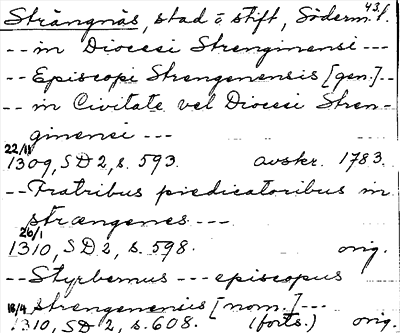 Strängnäs, stad o stift, Söderm. l. 43.
-- in Diocesi Strenginensi ---
-- Episcopi Strengenensis [gen.] --
-- in Civitate vel Diocesi Stren-
ginensi ---
22/11
1309, SD 2, s. 593. avskr. 1783.
-- Fratribus predicatoribus in
strængenes ---
26/1
1310, SD 2, s. 598. orig.
-- Styrbernus --- episcopus
strengenensis [nom.] ---
18/4
1310, SD 2, s. 608. (forts.) orig.